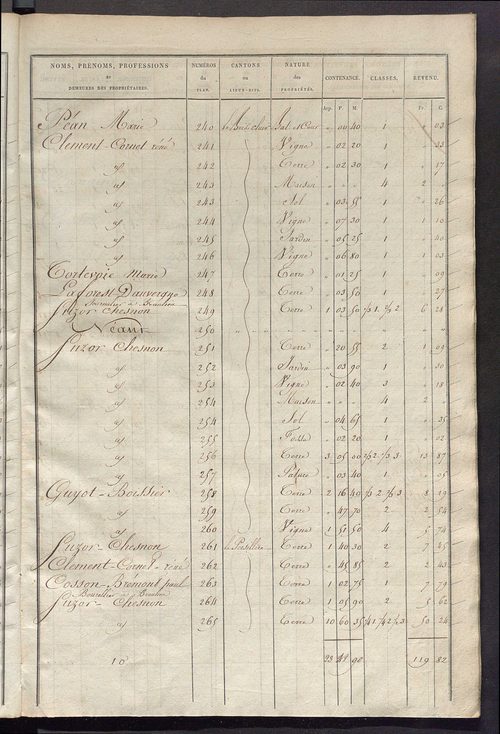 NOMS, PRÉNOMS, PROFESSIONS ET DEMEURES DES PROPRIÉTAIRES. NUMÉROS du PLAN. CANTONS ou LIEUX-DITS. NATURE des PROPRIÉTÉS. CONTENANCE. CLASSES. REVENU.
Arp. P. M. Fr. C.
Péan Marie 240 Sol et Cour " 00 40 1 " 03
Clement-Cornet rené 241 Vigne " 02 20 1 " 33
id 242 Terre " 02 30 1 " 17
id 243 Maison " " " 4 2 "
id 243 Sol " 03 55 1 " 26
id 244 Vigne " 07 30 1 1 10
id 245 Jardin " 05 25 1 " 40
id 246 Vigne " 06 80 1 1 03
Tortevoie Marie 247 Terre " 01 25 1 " 09
Laforest Dauvergne 248 Terre " 03 50 1 " 27
Journalier à Beaulieu
Luzor Chesnon 249 Terre 1 03 50 6 28
Néant 250
Luzor Chesnon 251 Terre " 20 55 2 1 09
id 252 Jardin " 03 90 1 " 30
id 253 Vigne " 02 40 3 " 18
id 254 Maison " " " 4 2 "
id 254 Sol " 04 65 1 " 35
id 255 Fossé " 02 20 1 " 02
id 256 Terre 3 05 00 13 87
id 257 Pature " 03 40 1 " 05
Guyot-Boissier 258 Terre 2 16 40 8 19
id 259 Terre " 47 70 2 2 54
id 260 Vigne 1 51 50 4 5 74
Luzor-Chesnon 261 Terre 1 40 30 2 7 25
Clement-Cornet-rené 262 Terre " 45 85 2 2 43
Cosson-Brémont paul 263 Terre 1 02 75 1 7 79
Bourrelier à Beaulieu
Luzor-Chesnon 264 Terre 1 05 90 2 5 62
id 265 Terre 10 60 35 50 24
10 23 41 90 119 82